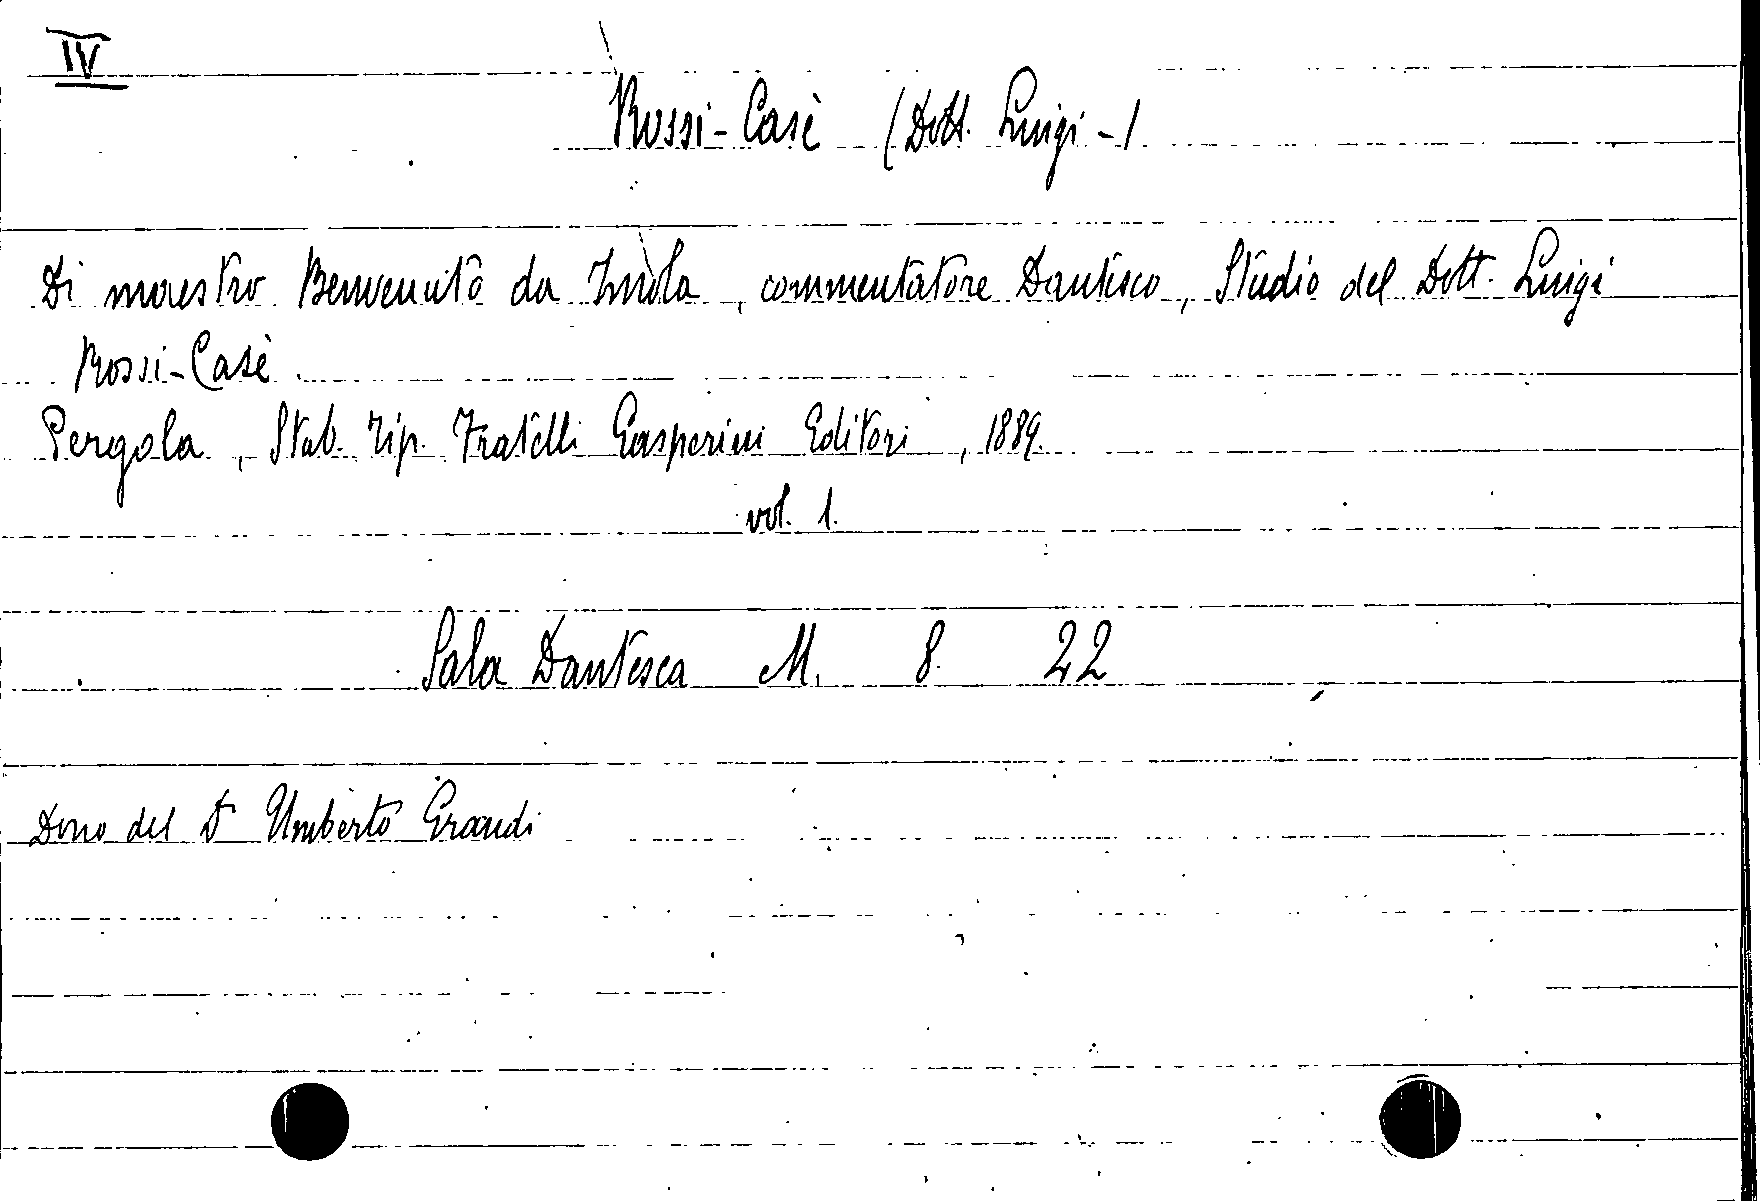 IV
Rossi-Casè (Dott. Luigi-)
Di maestro Benvenuto da Imola, commentatore Dantesco, Studio del Dott. Luigi
Rossi-Casè.
Pergola, Stab. Tip. Fratelli Gasperini Editori, 1889.
vol. 1.
Sala Dantesca M. 8. 22
Dono del Dr Umberto Grandi